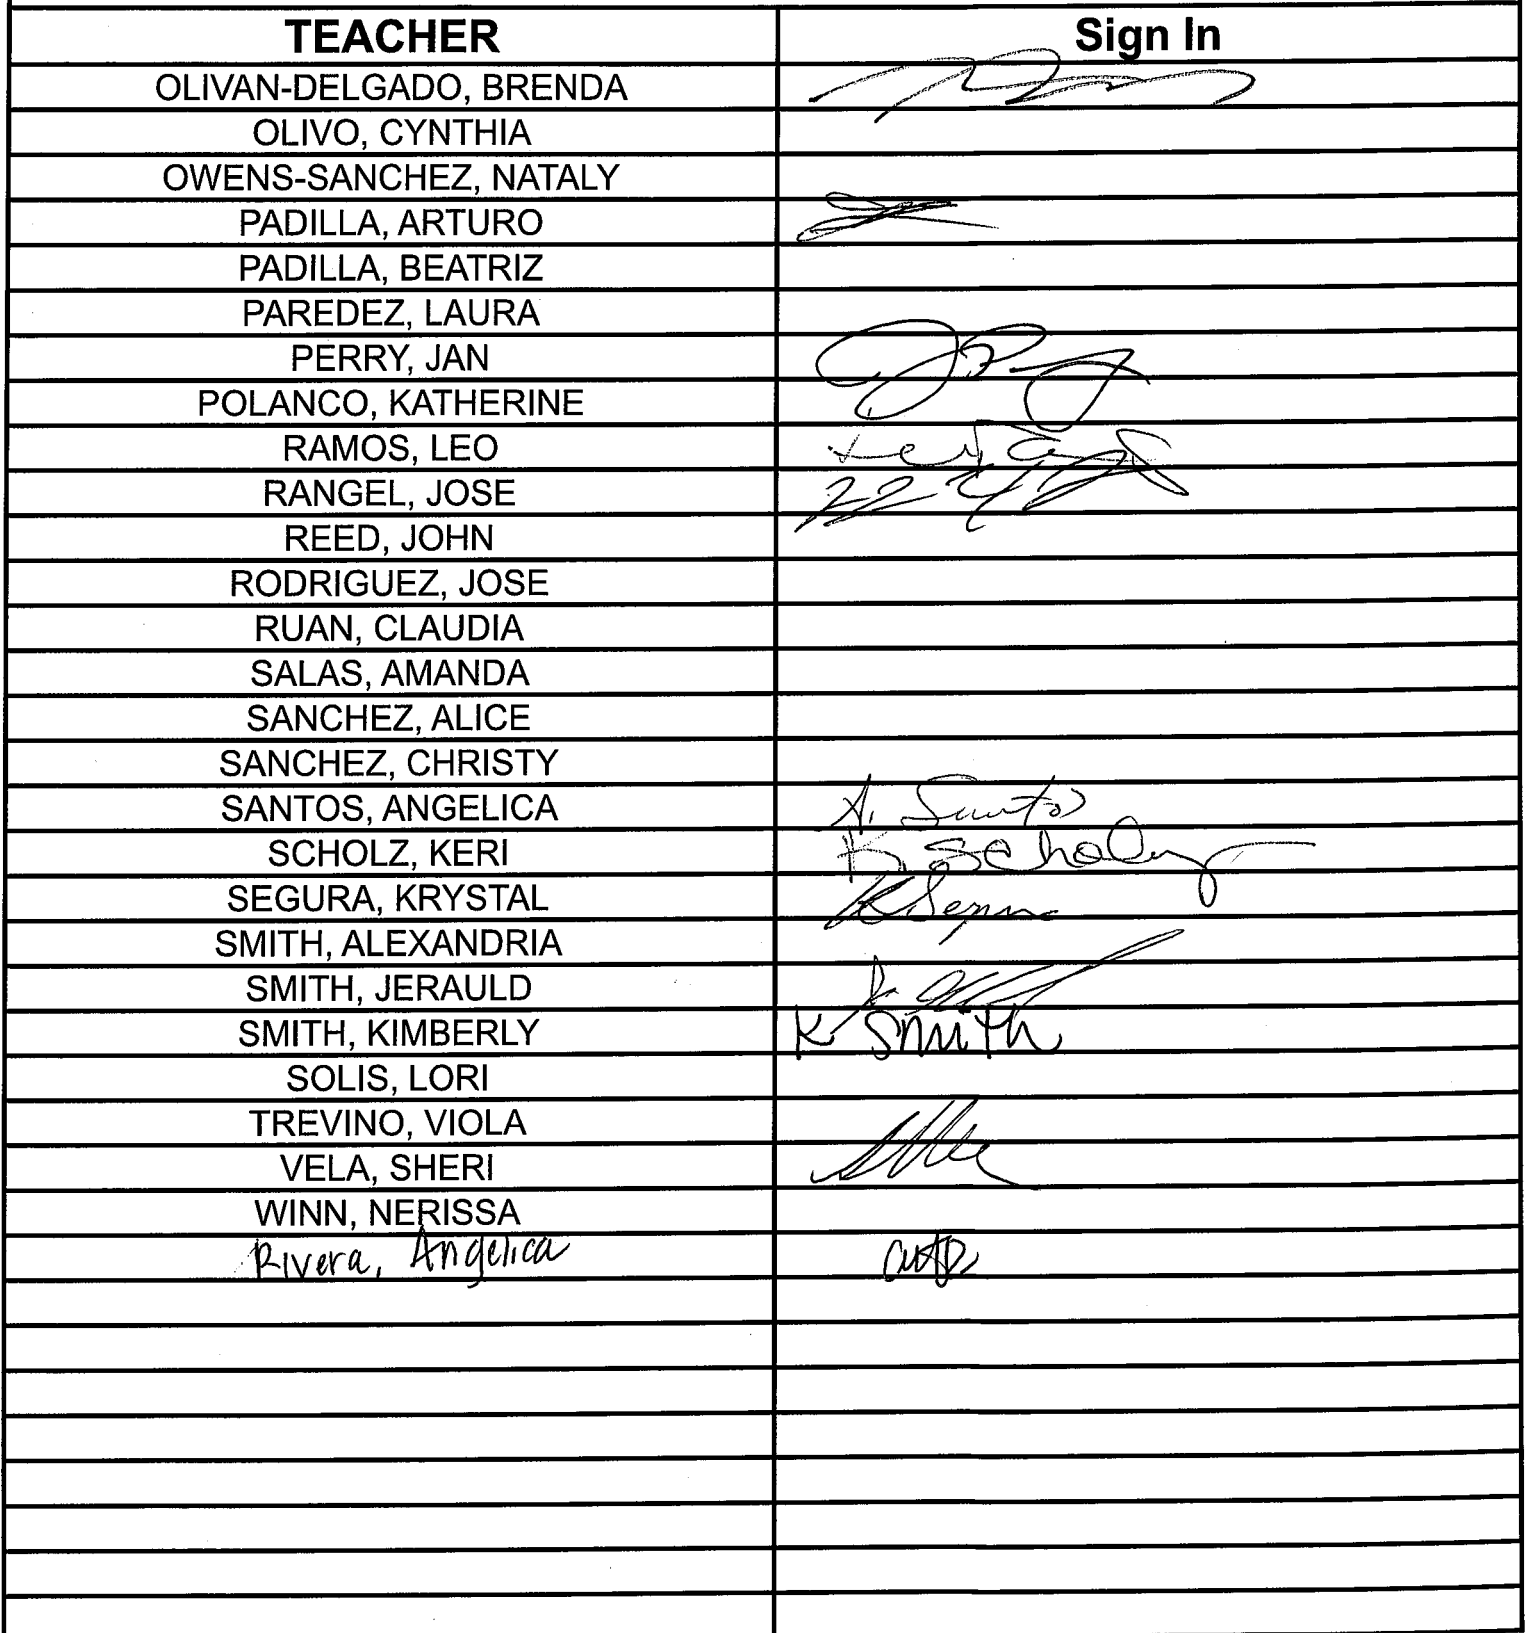 TEACHER Sign In
OLIVAN-DELGADO, BRENDA
OLIVO, CYNTHIA
OWENS-SANCHEZ, NATALY
PADILLA, ARTURO
PADILLA, BEATRIZ
PAREDEZ, LAURA
PERRY, JAN
POLANCO, KATHERINE
RAMOS, LEO
RANGEL, JOSE
REED, JOHN
RODRIGUEZ, JOSE
RUAN, CLAUDIA
SALAS, AMANDA
SANCHEZ, ALICE
SANCHEZ, CHRISTY
SANTOS, ANGELICA A. Santos
SCHOLZ, KERI K. Scholz
SEGURA, KRYSTAL
SMITH, ALEXANDRIA
SMITH, JERAULD
SMITH, KIMBERLY K Smith
SOLIS, LORI
TREVINO, VIOLA
VELA, SHERI
WINN, NERISSA
Rivera, Angelica